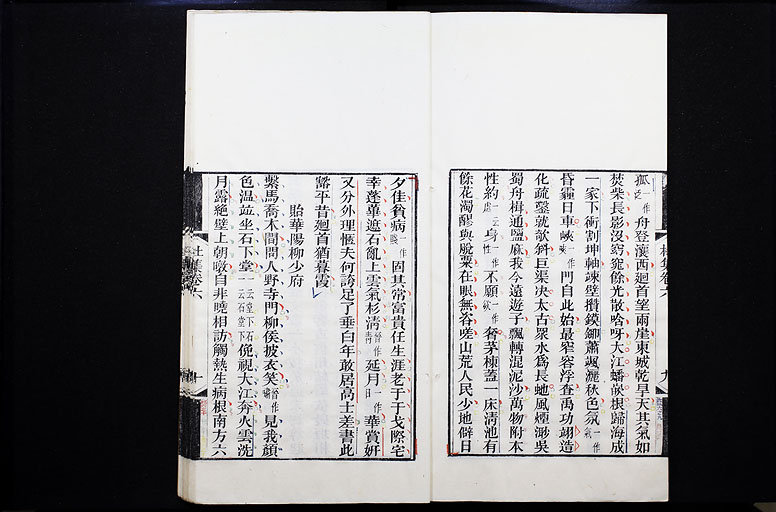 孤一作舟登瀼西廻首望兩崖東城乾旱天其氣如
焚柴長影沒窈窕餘光散唅呀大江蟠嵌根歸海成
一家下衝割坤軸竦壁攢鏌鋣蕭颯灑秋色氛一作
昏霾日車峽一作門自此始最窄容浮查禹功翊造
化疏鑿就欹斜巨渠決太古衆水爲長蛇風煙渺吳
蜀舟楫通鹽麻我今遠遊子飄轉混泥沙萬物附本
性約一云身一作不願一作奢茅棟蓋一床淸池有
餘花濁醪與脫粟在眼無咨嗟山荒人民少地僻日
夕佳貧病一作固其常富貴任生涯老于干戈際宅
幸蓬蓽遮石亂上雲氣杉淸一作延月一作華賞妍
又分外理愜夫何誇足了垂白年敢居高士差書此
豁平昔廻首猶暮霞
貽華陽柳少府
繫馬喬木間問人野寺門柳侯披衣笑一作見我顏
色溫竝坐石下堂一云堂下石一云石堂下俛視大江奔火雲洗
月露絶壁上朝暾自非曉相訪觸熱生病根南方六
杜集卷六
九
十